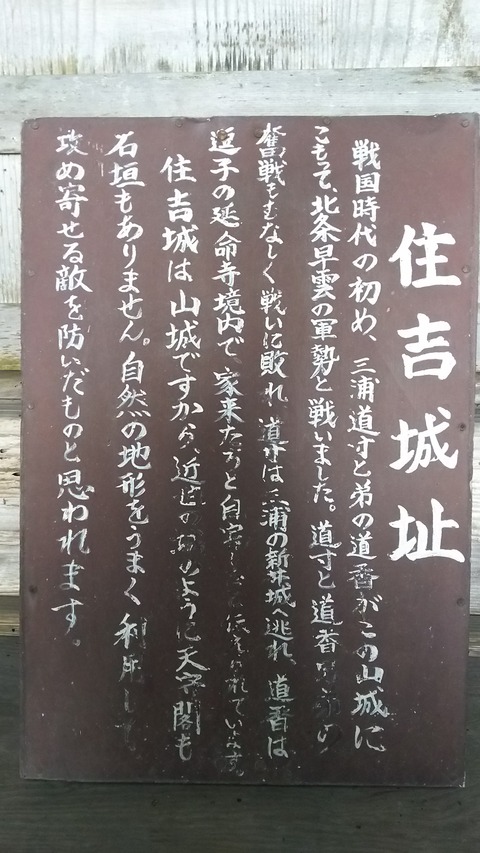 住吉城址
戦国時代の初め、三浦道寸と弟の道香がこの山城に
こもって、北条早雲の軍勢と戦いました。道寸と道香の
奮戦もむなしく戦いに敗れ、道寸は三浦の新井城へ逃れ、道香は
逗子の延命寺境内で、家来たちと自害したと伝えられています
住吉城は山城ですから、近世の城のように天守閣も
石垣もありません。自然の地形をうまく利用して
攻め寄せる敵を防いだものと思われます。